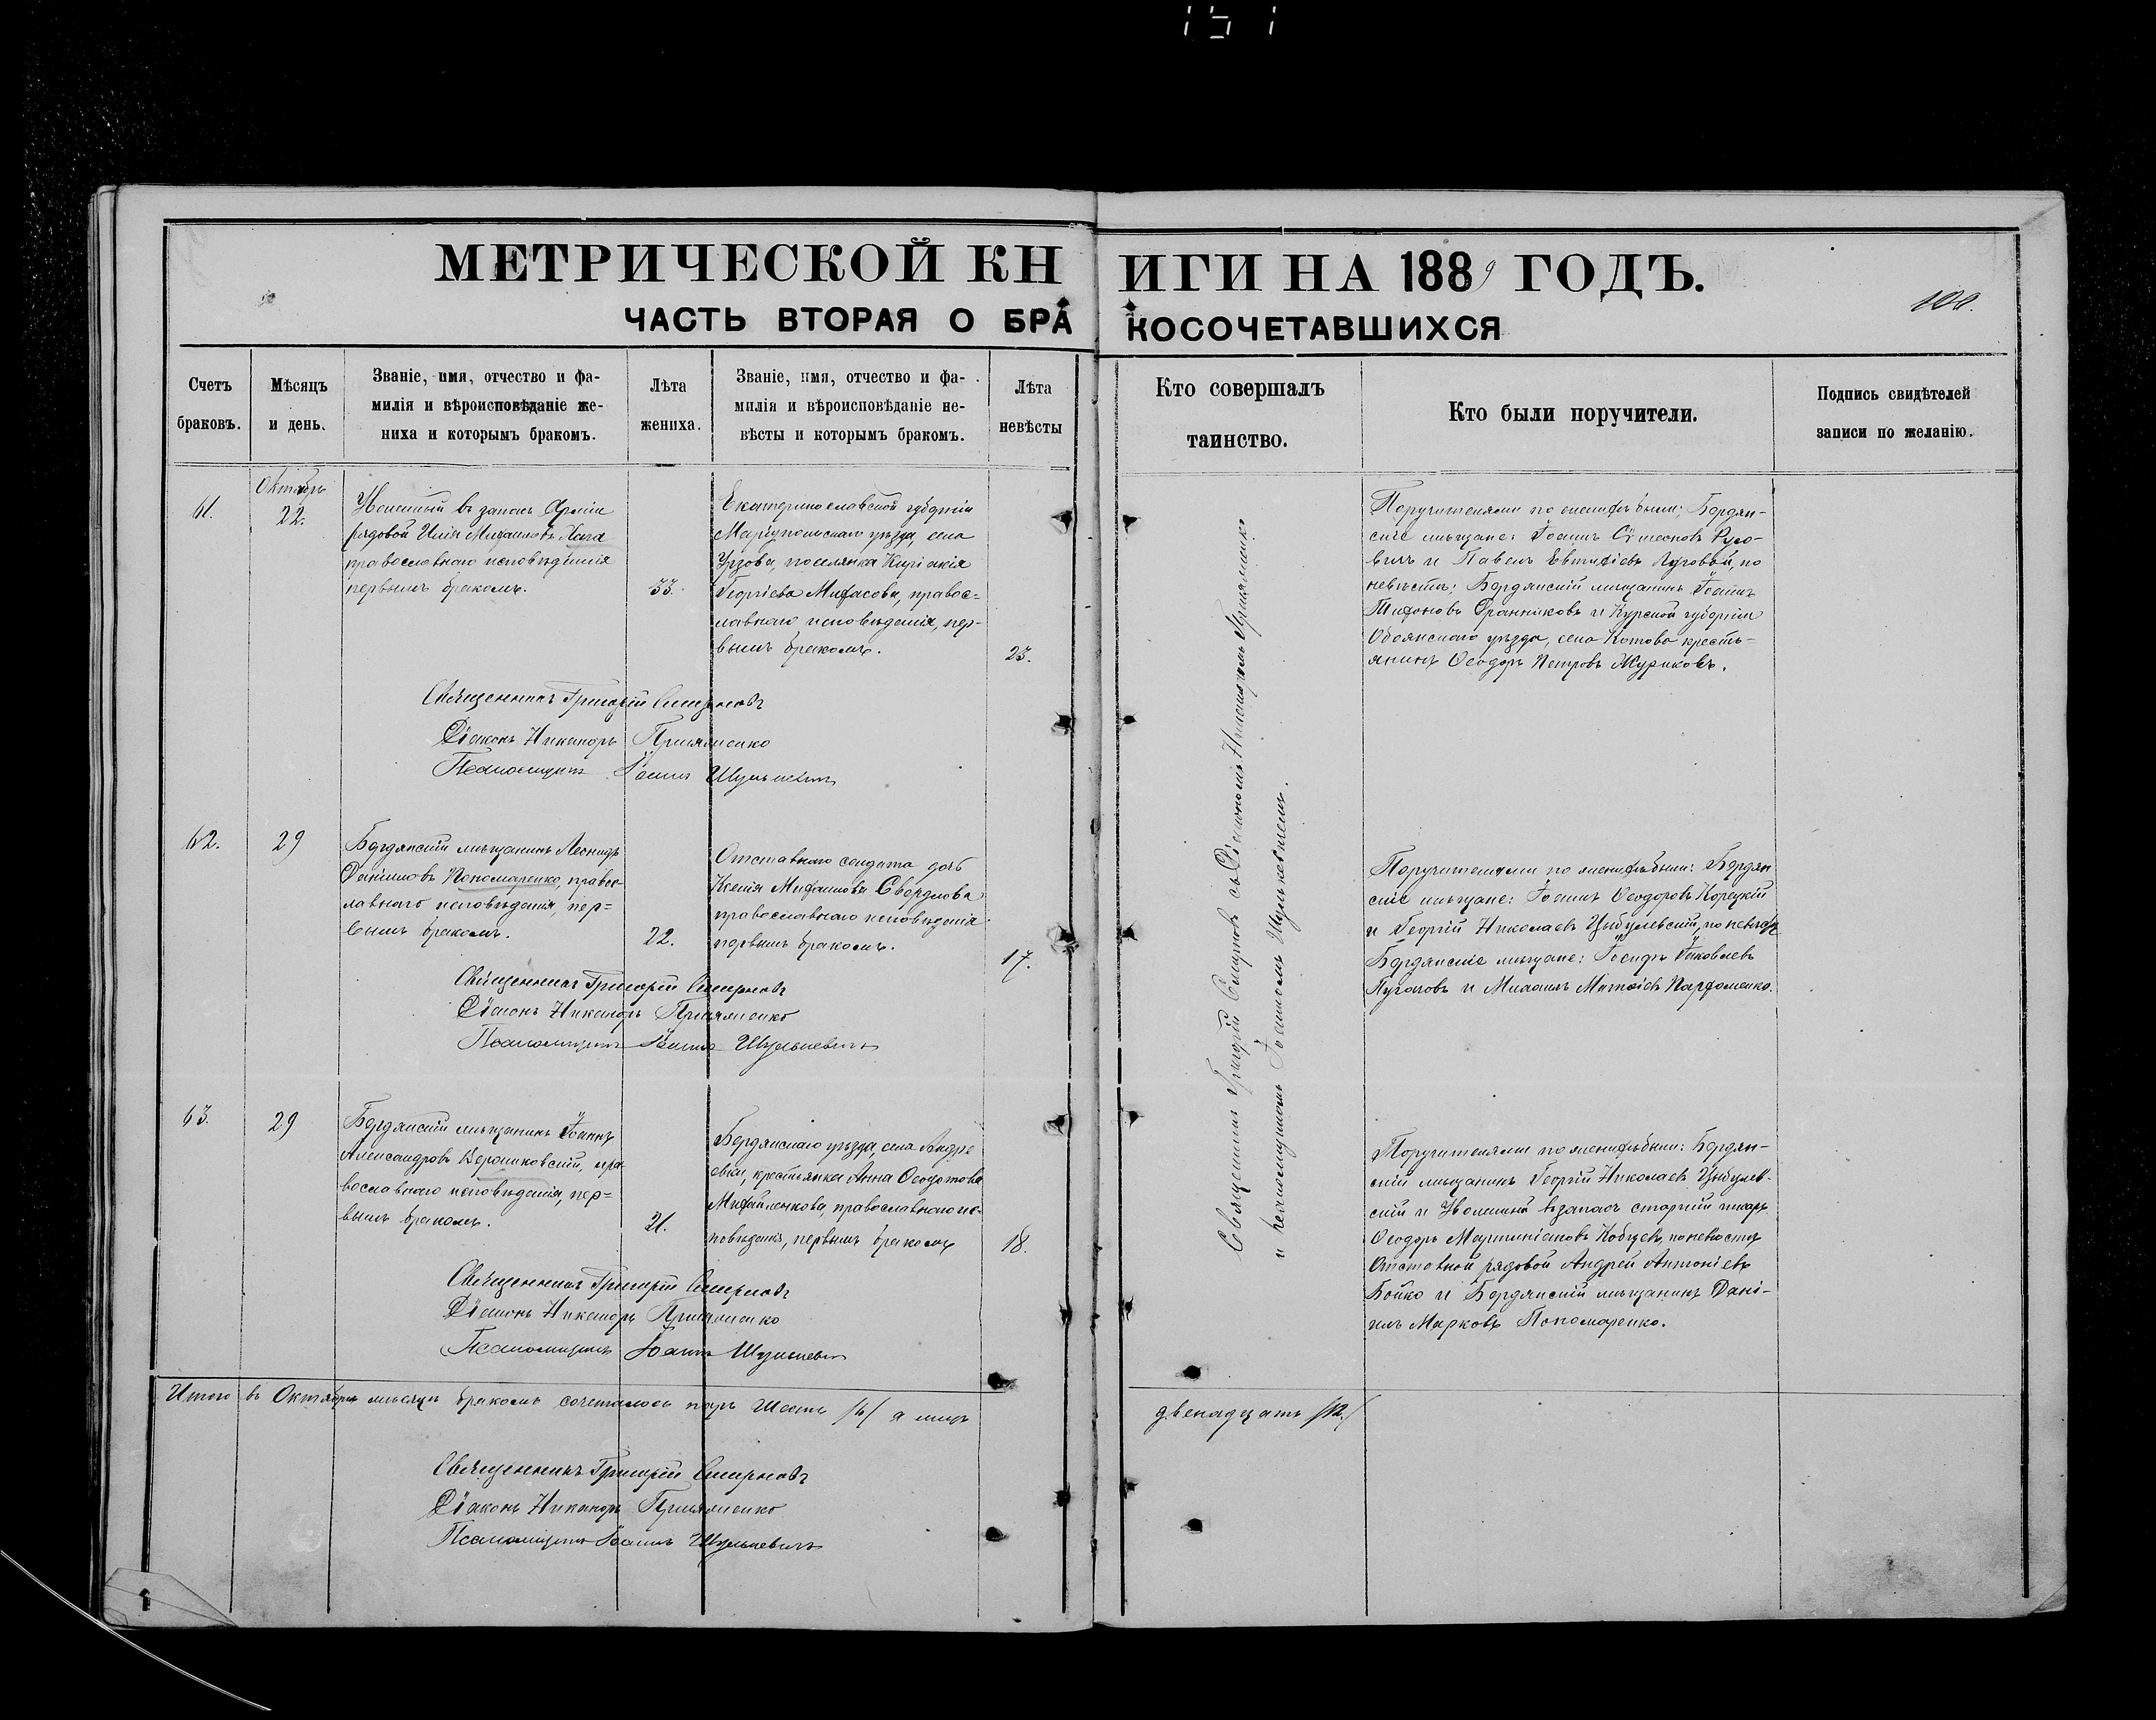 МЕТРИЧЕСКОЙ КНИГИ НА 1889 ГОДЪ.
ЧАСТЬ ВТОРАЯ О БРАКОСОЧЕТАВШИХСЯ
Счетъ браковъ.
Мѣсяцъ и день.
Званіе, имя, отчество и фа-
милія и вѣроисповѣданіе же-
ниха и которымъ бракомъ.
Лѣта жениха.
Званіе, имя, отчество и фа-
милія и вѣроисповѣданіе не-
вѣсты и которымъ бракомъ.
Лѣта невѣсты
Кто совершалъ
таинство.
Кто были поручители.
Подпись свидѣтелей
записи по желанію.
61.
Октябрь
22.
Уволенный въ запасъ Арміи
рядовой Илія Михаиловъ
православнаго исповѣданія
первымъ бракомъ.
33.
Екатеринославской губерніи
Маріупольскаго уѣзда, села
Урзова, поселянка Киріакія
Георгіева Мифасова, правос-
лавнаго исповѣданія, пер-
вымъ бракомъ.
23.
Поручителями по женихѣ были: Бердян-
скіе мѣщане: Іоаннъ Сѵмеоновъ
и Павелъ Евтихіевъ Луговой, по
невѣстѣ: Бердянскій мѣщанинъ Іоаннъ
Тихоновъ и Курской губерніи
Обоянскаго уѣзда, села Котова кресть-
янинъ Ѳеодоръ Петровъ Журиковъ.
Священникъ Григорій Смирновъ
Діаконъ Никаноръ Пришляменко
Псаломщикъ Іоаннъ Шулькевичъ
62.
29
Бердянскій мѣщанинъ Леонидъ
Даніиловъ Пономаренко, правос-
лавнаго исповѣданія, пер-
вымъ бракомъ.
22.
Отставнаго солдата дочь
Ксенія Михаилова Свердлова
православнаго исповѣданія
первымъ бракомъ.
17.
Поручителями по женихѣ были: Бердян
скіе мѣщане: Іоаннъ Ѳеодоровъ Корецкій
и Георгій Николаевъ Цыбулевскій, по невѣстѣ
Бердянскіе мѣщане: Іосифъ Іаковлевъ
Пугачовъ и Михаилъ Матѳіевъ Парфоменко.
Священникъ Григорій Смирновъ
Діаконъ Никаноръ
Псаломщикъ Іоаннъ Шулькевичъ
63.
29
Бердянскій мѣщанинъ Іоаннъ
Александровъ Верниковскій, пра-
вославнаго исповѣданія, пер-
вымъ бракомъ.
21.
Бердянскаго уѣзда, села Андре
евки, крестьянка Анна Ѳеодотова
Михайленкова, православнаго ис-
повѣданія, первымъ бракомъ
18.
Поручителями по женихѣ были: Бердян-
скій мѣщанинъ Георгій Николаевъ Цыбулев-
скій и Уволенный въ запасъ старшій писарь
Ѳеодоръ Мартиніановъ Кобцевъ, по невѣстѣ
Отставной рядовой Андрей Антоніевъ
Бойко и Бердянскій мѣщанинъ Дані-
илъ Марковъ Пономаренко.
Священникъ Григорій Смирновъ
Діаконъ Никаноръ
Псаломщикъ Іоаннъ Шулькевичъ
Священникъ Григорій Смирновъ съ Діакономъ Никаноромъ
и псаломщикомъ Іоанномъ Шулькевичемъ.
Итого въ Октябрѣ мѣсяцѣ бракомъ сочеталось паръ шесть /6/ а лицъ двенадцать /12./
Священникъ Григорій Смирновъ
Діаконъ Никаноръ
Псаломщикъ Іоаннъ Шулькевичъ